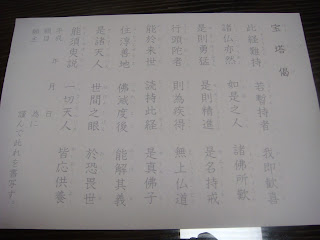 宝塔偈
此経難持 若暫持者 我即歓喜
諸仏亦然 如是之人 諸仏所歎
是則勇猛 是則精進 是名持戒
行頭陀者 則為疾得 無上仏道
能於来世 読持此経 是真仏子
住淳善地 仏滅度後 能解其義
是諸天人 世間之眼 於恐畏世
能須臾説 一切天人 皆応供養
年 月 日
為に
謹んで此れを書写す